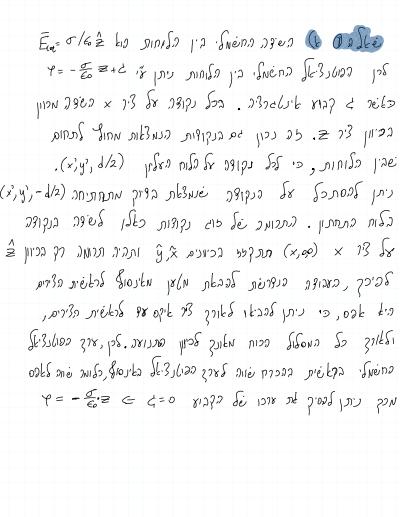 שאלה 1 א) השדה החשמלי בין הלוחות הוא E = σ/ε₀ ẑ
לכן הפוטנציאל החשמלי בין הלוחות ניתן ע"י φ = -σ/ε₀ z + c
כאשר c קבוע אינטגרציה. בכל נקודה על ציר x השדה מכוון
בכיוון ציר z. זה נכון גם בנקודות הנמצאות מחוץ לתחום
שבין הלוחות, כי לכל נקודה על הלוח העליון (x', y', d/2).
ניתן להסתכל על הנקודה שנמצאת בדיוק מתחתיה (x', y', -d/2)
בלוח התחתון. התרומה של זוג נקודות כאלו לשדה בנקודה
על ציר x (x,0,0) תתקזז בכיוונים x̂, ŷ ותהיה תרומה רק בכיוון ẑ
לפיכך, העבודה הנדרשת להבאת מטען מאינסוף לראשית הצירים
היא אפס, כי ניתן להביאו לאורך ציר איקס עד לראשית הצירים,
ולאורך כל המסלול הכוח מאונך לכיוון התנועה. לכן, ערך הפוטנציאל
החשמלי בראשית בהכרח שווה לערך הפוטנציאל באינסוף, כלומר שווה לאפס
מכך ניתן להסיק את ערכו של הקבוע c = 0 ⇐ φ = -σ/ε₀ z